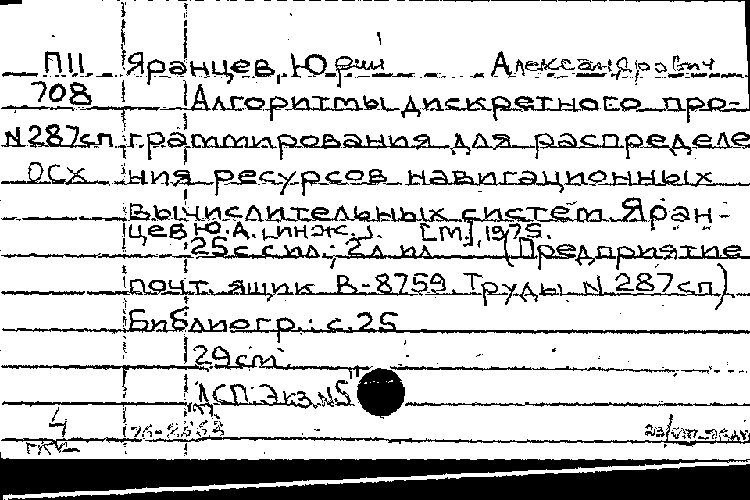 П11 Яранцев, Юрий Александрович
708 Алгоритмы дискретного про-
N287сп граммирования для распределе
ОСХ ния ресурсов навигационных
вычислительных систем. Яран-
цев Ю.А., инж., [М.], 1975.
25с с ил.; 2л ил (Предприятие
почт. ящик В-8759. Труды N 287сп)
Библиогр.: с. 25
29cm.
ДСП. Экз. N5
4